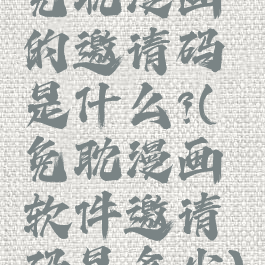 兔耽漫画
的邀请码
是什么?(
兔耽漫画
软件邀请
码是多少)